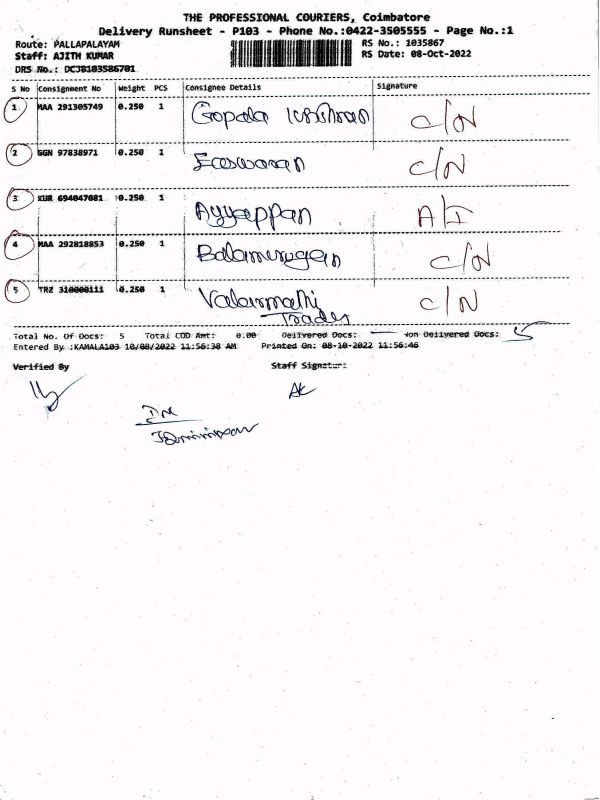 THE PROFESSIONAL COURIERS, Coimbatore
Delivery Runsheet - P103 - Phone No.:0422-3505555 - Page No.:1
Route: PALLAPALAYAM RS No.: 1035867
Staff: AJITH KUMAR RS Date: 08-Oct-2022
DRS No.: DCJB103586701
S No Consignment No Weight PCS Consignee Details Signature
1 MAA 291305749 0.250 1 Gopala Krishnan C/N
2 GGN 97838971 0.250 1 Easwaran C/N
3 KUR 694047081 0.250 1 Ayyappan A/I
4 MAA 292818853 0.250 1 Balamurugan C/N
5 TRZ 310000111 0.250 1 Valarmathi C/N
Trades
Total No. Of Docs: 5 Total COD Amt: 0.00 Delivered Docs: — Non Delivered Docs: 5
Entered By :KAMALA103 10/08/2022 11:56:38 AM Printed On: 08-10-2022 11:56:46
Verified By Staff Signature:
AK